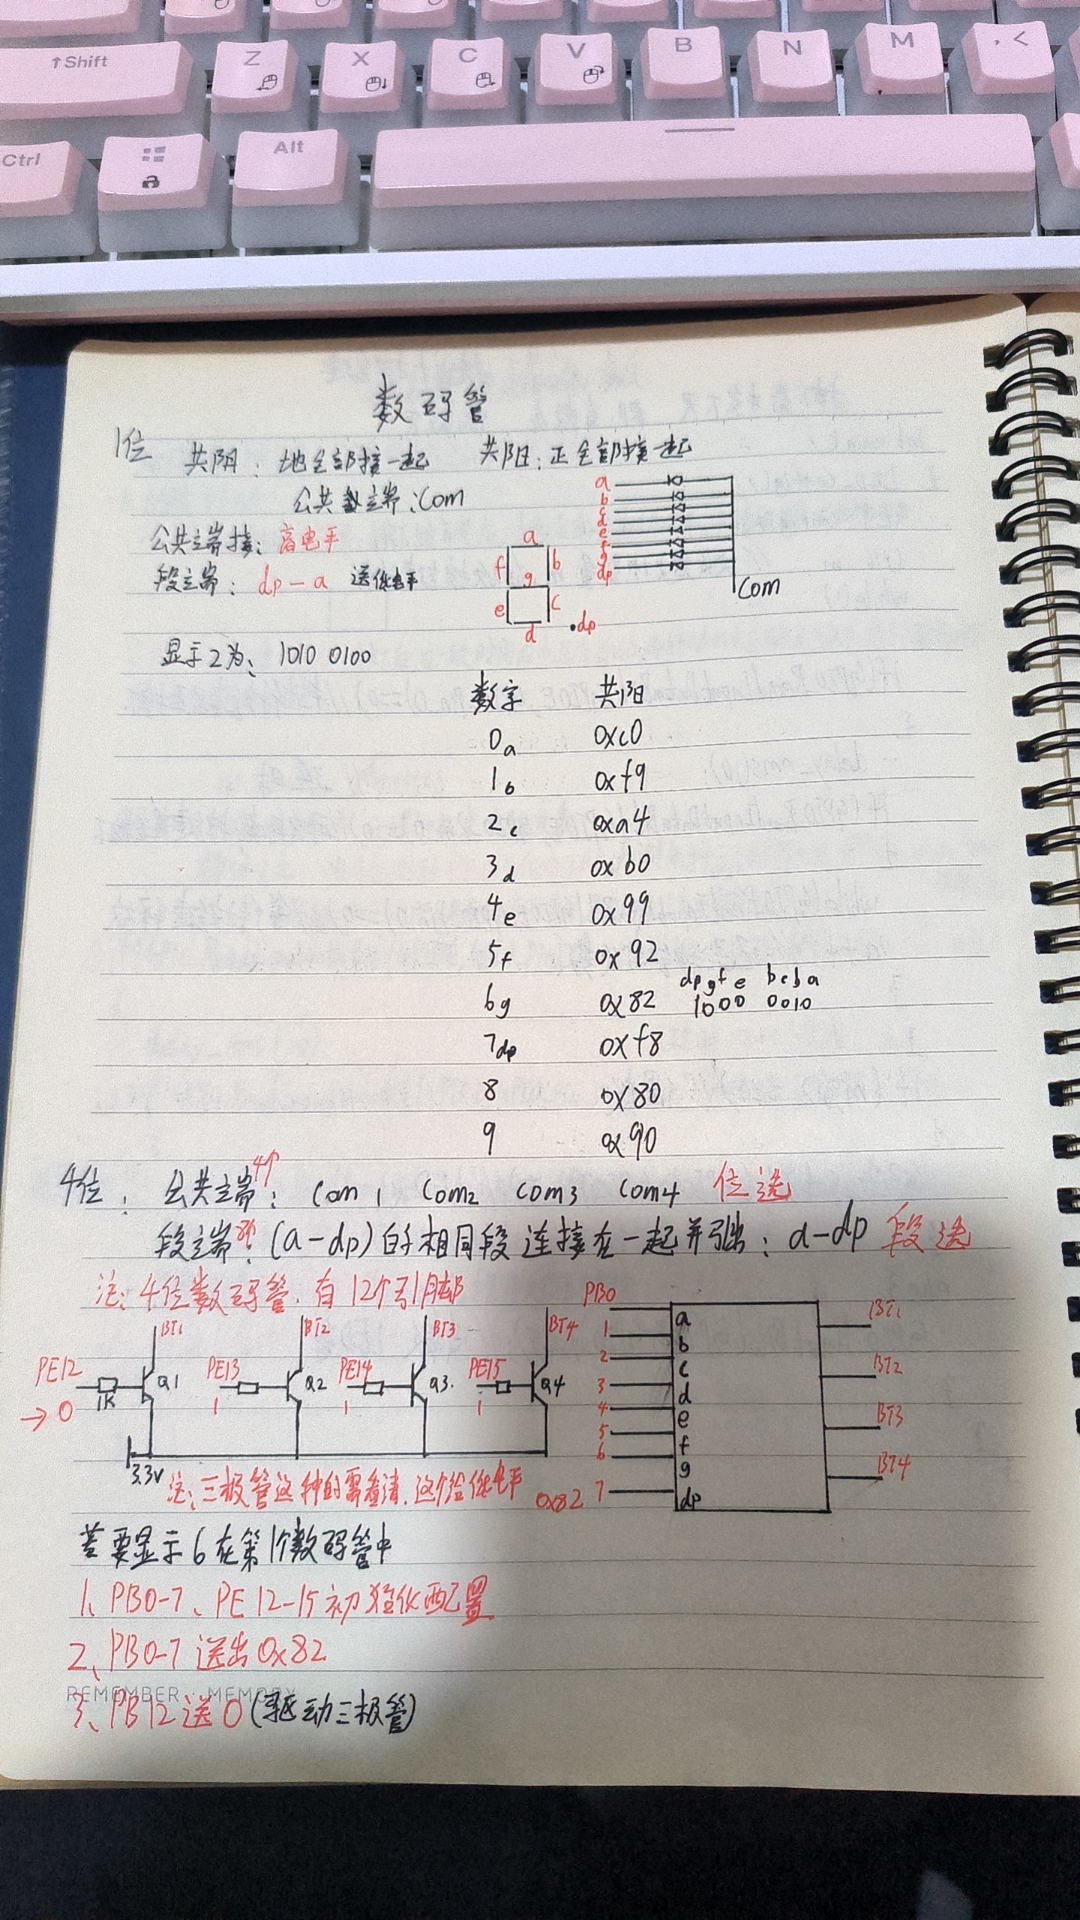 ↑Shift Z X C V B N M , <
Ctrl Alt
数码管
1位 共阴：地全部接一起 共阳：正全部接一起
公共端：Com
公共端接：高电平
段端：dp-a 送低电平
a
b
c
d
e
f
g
dp
Com
a
f b
g
e c
d
dp
显示2为、1010 0100
数字 共阳
0a 0xc0
1b 0xf9
2c 0xa4
3d 0xb0
4e 0x99
5f 0x92
dp g f e b c b a
6g 0x82 1000 0010
7dp 0xf8
8 0x80
9 0x90
4位：公共端4个：Com1 Com2 Com3 Com4 位选
段端8个：(a-dp)的相同段连接在一起并引出：a-dp 段选
注：4位数码管，有12个引脚
BT1 BT2 BT3 BT4
PE12 PE13 PE14 PE15
Q1 Q2 Q3. Q4
1K
→0 1 1 1
3.3V
PB0 a BT1
1 b
2 c BT2
3 d
4 e BT3
5 f
6 g BT4
0x82 7 dp
注：三极管这种的需看清，这个给低电平
若要显示6在第1个数码管中
1、PB0-7、PE12-15初始化配置
2、PB0-7送出0x82
REMEMBER MEMORY
3、PB12送0(驱动三极管)